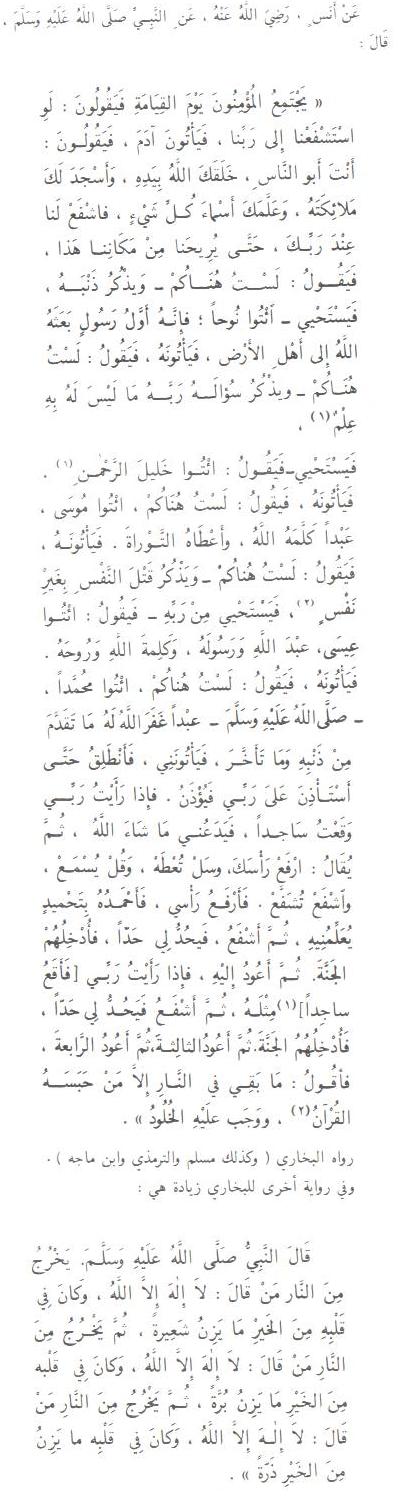 عَنْ أَنَسٍ ، رَضِيَ اللَّهُ عَنْهُ ، عَنِ النَّبِيِّ صَلَّى اللَّهُ عَلَيْهِ وَسَلَّمَ ،
قَالَ :
« يَجْتَمِعُ المُؤْمِنُونَ يَوْمَ القِيَامَةِ فَيَقُولُونَ : لَوِ
اسْتَشْفَعْنا إلى رَبِّنا ، فَيَأْتُونَ آدَمَ ، فَيَقُولُونَ :
أَنْتَ أَبو النَّاسِ ، خَلَقَكَ اللَّهُ بِيَدِهِ ، وَأَسْجَدَ لَكَ
مَلَائِكَتَهُ ، وَعَلَّمَكَ أَسْمَاءَ كُلِّ شَيْءٍ ، فاشْفَعْ لَنا
عِنْدَ رَبِّكَ ، حَتَّى يُرِيحَنا مِنْ مَكَانِنا هَذا ،
فَيَقُولُ : لَسْتُ هُنَاكُمْ ــ ويَذْكُرُ ذَنْبَهُ ،
فَيَسْتَحْيِي ــ ائْتُوا نُوحاً ؛ فإنَّهُ أَوَّلُ رَسُولٍ بَعَثَهُ
اللَّهُ إلى أَهْلِ الأَرْضِ ، فَيَأْتُونَهُ ، فَيَقُولُ : لَسْتُ
هُنَاكُمْ ــ ويَذْكُرُ سُؤَالَهُ رَبَّهُ مَا لَيْسَ لَهُ بِهِ
عِلْمٌ (١) ،
فَيَسْتَحْيِي ــ فَيَقُولُ : ائْتُوا خَلِيلَ الرَّحْمٰنِ (١) .
فَيَأْتُونَهُ ، فَيَقُولُ : لَسْتُ هُنَاكُمْ ، ائْتُوا مُوسَى ،
عَبْداً كَلَّمَهُ اللَّهُ ، وَأَعْطَاهُ التَّوْراةَ . فَيَأْتُونَهُ ،
فَيَقُولُ : لَسْتُ هُناكُمْ ــ وَيَذْكُرُ قَتْلَ النَّفْسِ بِغَيْرِ
نَفْسٍ (٢)، فَيَسْتَحْيِي مِنْ رَبِّهِ ــ فَيَقُولُ : ائْتُوا
عِيسَى، عَبْدَ اللَّهِ وَرَسُولَهُ ، وَكَلِمَةَ اللَّهِ وَرُوحَهُ .
فَيَأْتُونَهُ ، فَيَقُولُ : لَسْتُ هُنَاكُمْ ، ائْتُوا مُحَمَّداً ،
ــ صَلَّى اللَّهُ عَلَيْهِ وَسَلَّمَ ــ عَبْداً غَفَرَ اللَّهُ لَهُ مَا تَقَدَّمَ
مِنْ ذَنْبِهِ وَمَا تَأَخَّرَ ، فَيَأْتُونَنِي ، فَأَنْطَلِقُ حَتَّى
أَسْتَأْذِنَ عَلَى رَبِّي فَيُؤْذَنُ . فإِذا رَأَيْتُ رَبِّي
وَقَعْتُ سَاجِداً ، فَيَدَعُنِي مَا شَاءَ اللَّهُ ، ثُمَّ
يُقالُ : ارْفَعْ رَأْسَكَ، وَسَلْ تُعْطَهْ ، وَقُلْ يُسْمَعْ ،
وَاشْفَعْ تُشَفَّعْ . فَأَرْفَعُ رَأْسِي ، فَأَحْمَدُهُ بِتَحْمِيدٍ
يُعَلِّمُنِيهِ ، ثُمَّ أَشْفَعُ ، فَيَحُدُّ لِي حَدّاً ، فأُدْخِلُهُمْ
الجَنَّةَ. ثُمَّ أَعُودُ إلَيْهِ ، فإذا رَأَيْتُ رَبِّي [فَأَقَعُ
ساجِداً](١) مِثْلَهُ ، ثُمَّ أَشْفَعُ فَيَحُدُّ لِي حَدّاً ،
فَأُدْخِلُهُمُ الجَنَّةَ. ثُمَّ أَعُودُ الثالِثةَ، ثُمَّ أَعُودُ الرَّابعةَ ،
فأقُولُ : مَا بَقِي فِي النَّارِ إلاَّ مَنْ حَبَسَهُ
القُرْآنُ (٢) ، ووَجَب عَلَيْهِ الخُلُودُ » .
رواه البخاري ( وكذلك مسلم والترمذي وابن ماجه ) .
وفي رواية أخرى للبخاري زيادة هي :
قَالَ النَّبِيُّ صَلَّى اللَّهُ عَلَيْهِ وَسَلَّمَ. يَخْرُجُ
مِنَ النَّار مَنْ قَالَ : لاَ إلٰهَ إلاَّ اللَّهُ ، وَكانَ فِي
قَلْبِهِ مِنَ الخَيْرِ مَا يَزِنُ شَعِيرةً ، ثُمَّ يَخْرُجُ مِنَ
النَّارِ مَنْ قَالَ : لاَ إلٰهَ إلاَّ اللَّهُ ، وَكَانَ فِي قَلْبه
مِنَ الخَيْرِ مَا يَزِنُ بُرَّةً ، ثُمَّ يَخْرُجُ مِنَ النَّارِ مَنْ
قَالَ : لاَ إلٰهَ إلاَّ اللَّهُ ، وَكَانَ فِي قَلْبِه ما يَزِنُ
مِنَ الخَيْرِ ذَرَّةً » .